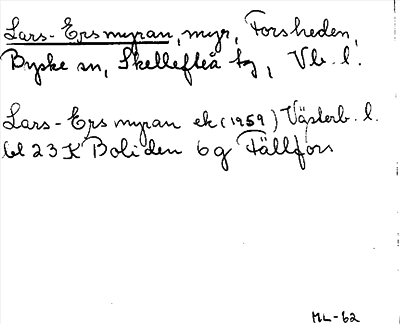 Lars-Ersmyran, myr, Forsheden,
Byske sn, Skellefteå tg, Vb. l.
Lars-Ersmyran ek (1959) Västerb. l.
bl 23 K Boliden 6g Fällfors
ML-62